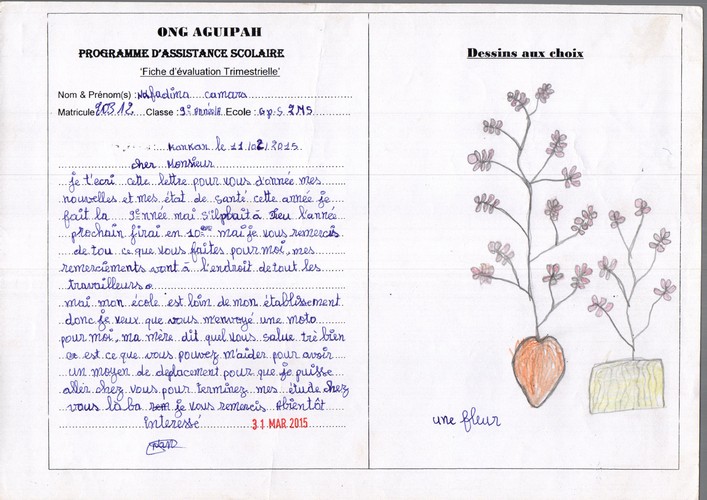 ONG AGUIPAH
PROGRAMME D'ASSISTANCE SCOLAIRE
'Fiche d'évaluation Trimestrielle'
Nom & Prénom(s) : Nafadima camara
Matricule 20312 Classe : 9e année/A Ecole : Gp.S 2 MS
Kankan le 11/02/2015
cher Monsieur
je t'ecri cette lettre pour vous d'année mes
nouvelles et mes état de santé cette année je
fait la 9e nnée mai s'ilplait à Dieu l'année
prochain j'irai en 10ème mai je vous remercis
de tou ce que vous faites pour moi, mes
remerciements vont à l'endroit de tout les
travailleurs.
mai mon école est loin de mon établissement
donc je veux que vous m'envoyé une moto
pour moi, ma mère dit quel vous salue trè bien
est ce que vous pouvez m'aider pour avoir
un moyen de deplacement pour que je puisse
aller chez vous pour terminez mes étude chez
vous là ba je vous remercis Abientôt
Interessé
31 MAR 2015
Dessins aux choix
une fleur